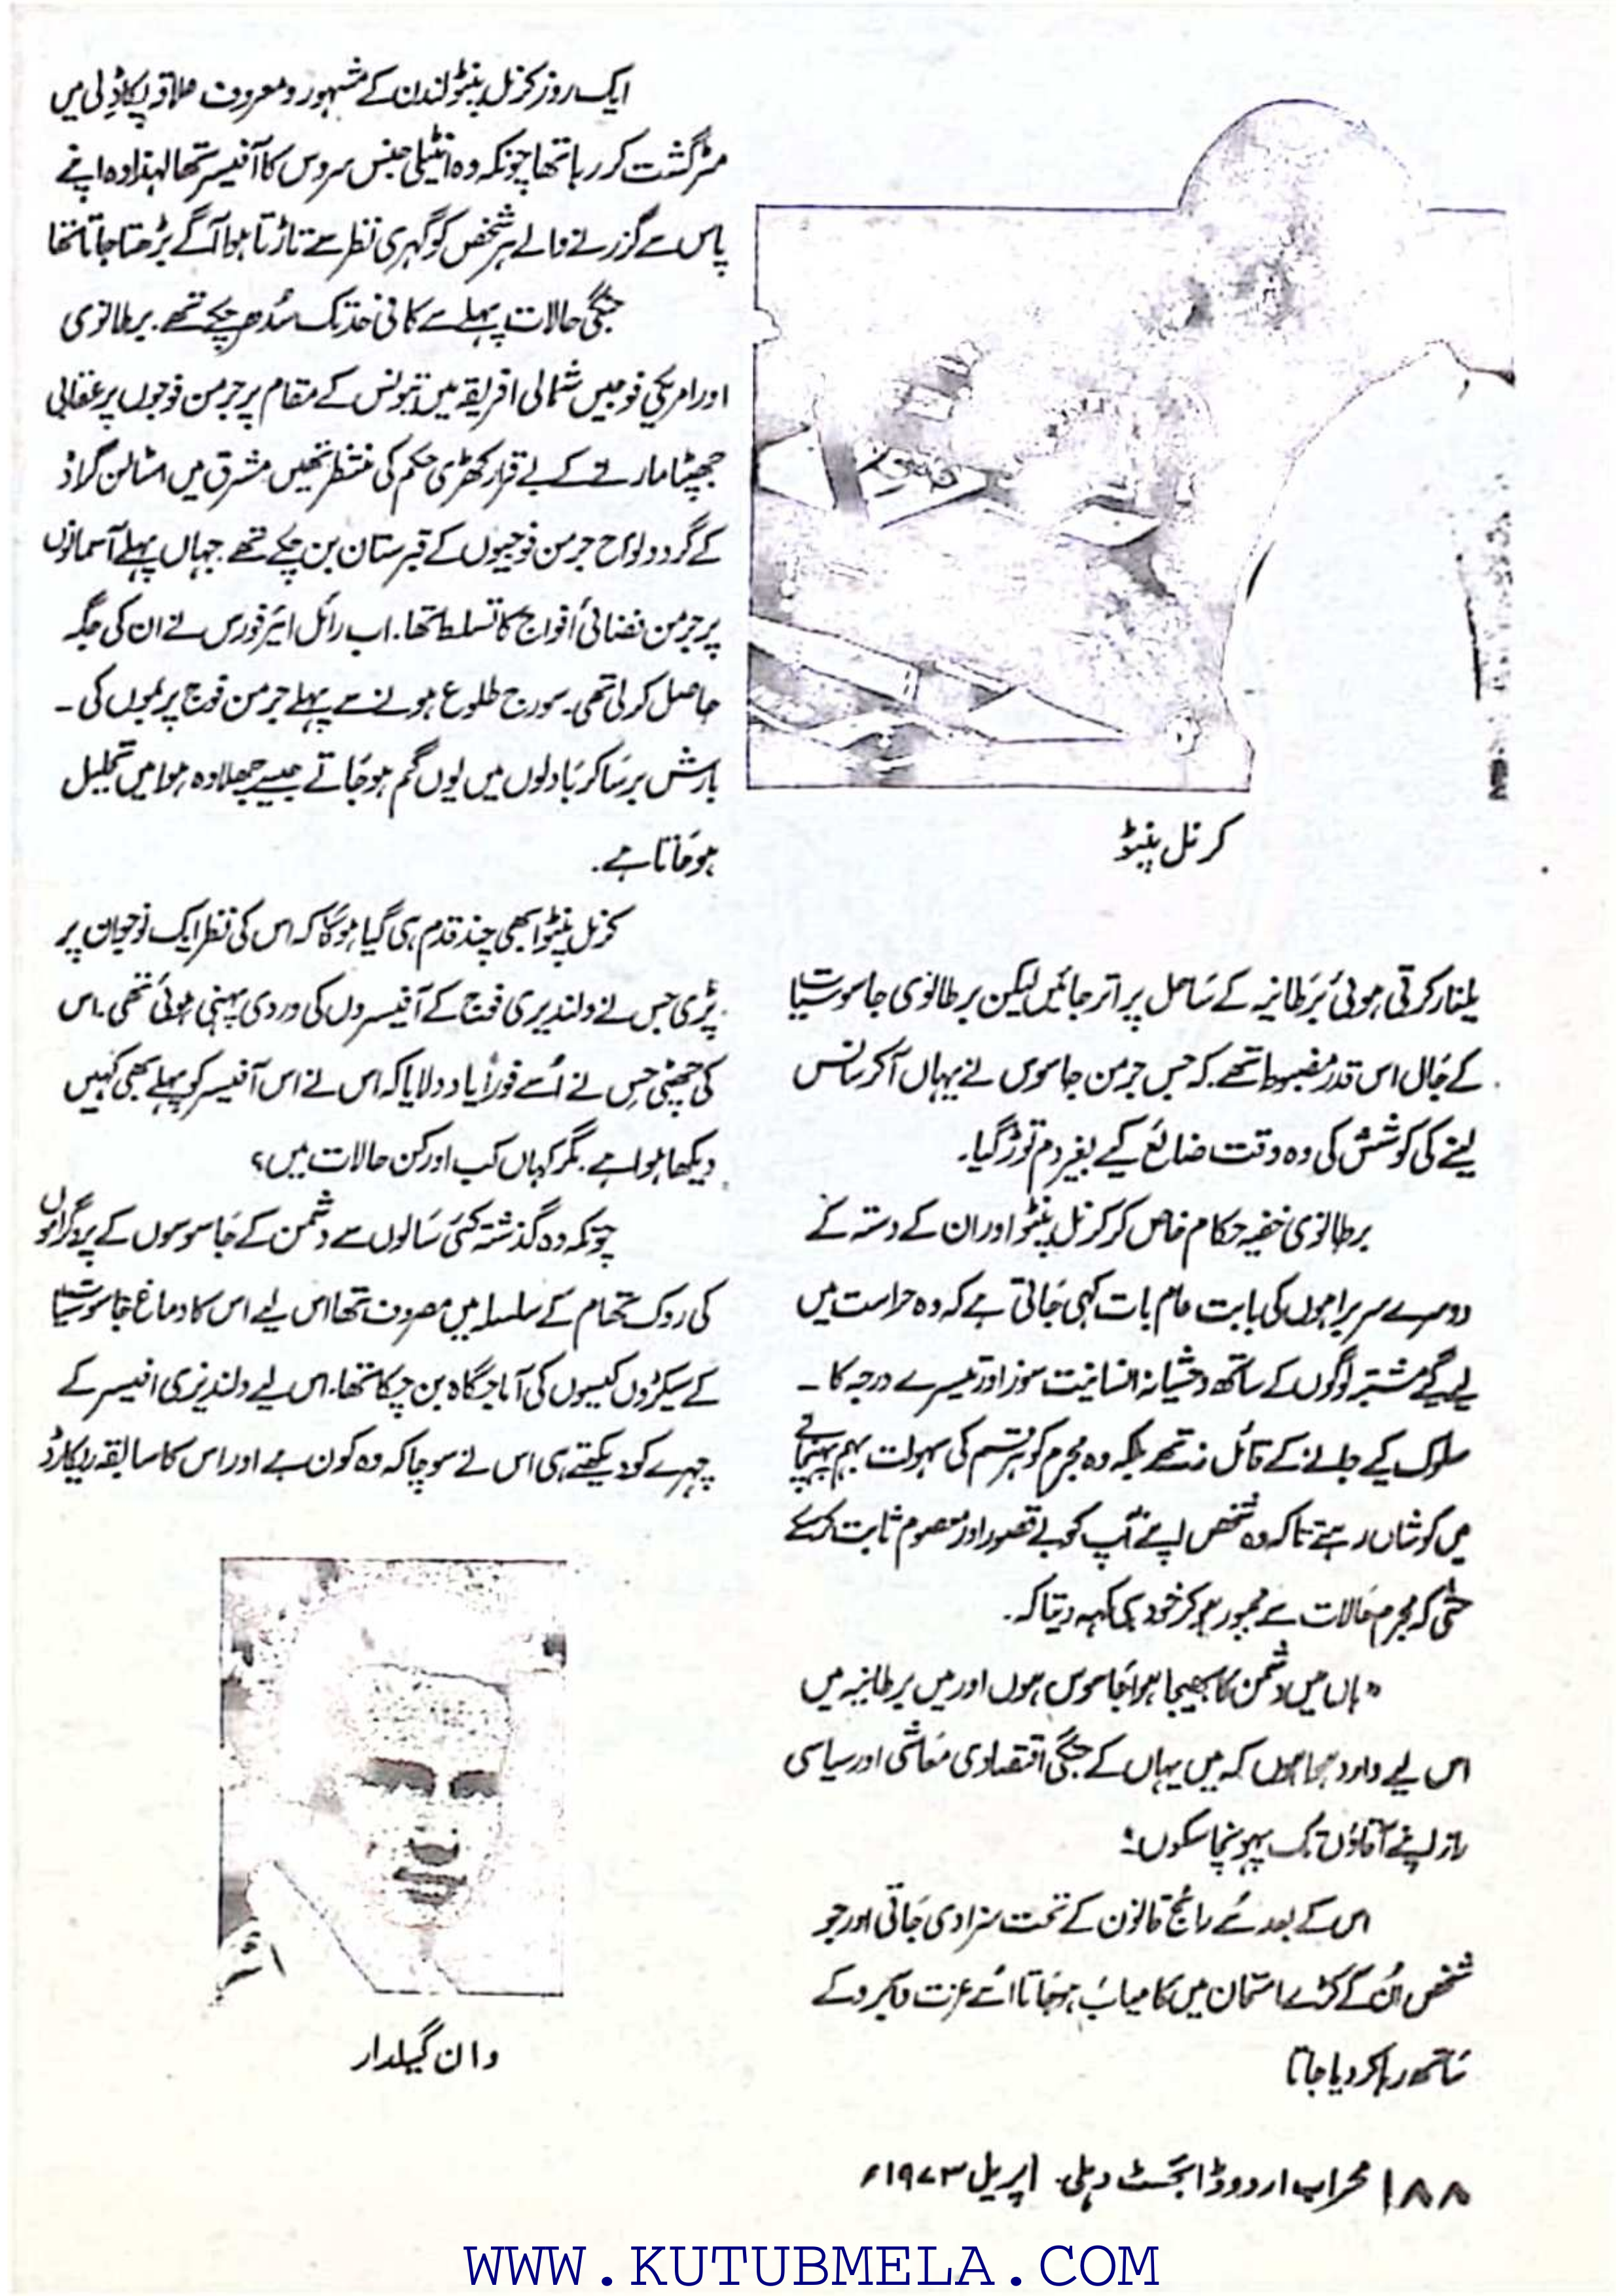 کرنل پنٹو
یلغار کرتی ہوئی برطانیہ کے ساحل پر اتر جائیں لیکن برطانوی جاسوسیات
کے جال اس قدر مضبوط تھے کہ جس جرمن جاسوس نے یہاں آکر سانس
لینے کی کوشش کی وہ وقت ضائع کیے بغیر دم توڑ گیا۔
برطانوی خفیہ حکام خاص کر کرنل پنٹو اور ان کے دستہ کے
دوسرے سربراہوں کی بابت عام بات کہی جاتی ہے کہ وہ حراست میں
لیے گیے مشتبہ لوگوں کے ساتھ وحشیانہ انسانیت سوز اور تیسرے درجہ کا ۔
سلوک کیے جانے کے قائل نہ تھے بلکہ وہ مجرم کو ہر قسم کی سہولت بہم پہنچانے
میں کوشاں رہتے تاکہ وہ شخص اپنے آپ کو بے قصور اور معصوم ثابت کرسکے
حتیٰ کہ مجرم حالات سے مجبور ہو کر خود ہی کہہ دیتا کہ۔
"ہاں میں دشمن کا بھیجا ہوا جاسوس ہوں اور میں برطانیہ میں
اس لیے وارد ہوا ہوں کہ میں یہاں کے جنگی اقتصادی معاشی اور سیاسی
راز اپنے آقاؤں تک پہونچا سکوں"
اس کے بعد اسے رائج قانون کے تحت سزا دی جاتی اور جو
شخص اُن کے کڑے امتحان میں کامیاب ہو جاتا اسے عزت و آبرو کے
ساتھ رہا کر دیا جاتا
ایک روز کرنل پنٹو لندن کے مشہور و معروف علاقہ پکاڈلی میں
مٹر گشت کر رہا تھا چونکہ وہ انٹیلی جنس سروس کا آفیسر تھا لہٰذا وہ اپنے
پاس سے گزرنے والے ہر شخص کو گہری نظر سے تاڑتا ہوا آگے بڑھتا جاتا تھا
جنگی حالات پہلے سے کافی حد تک سُدھر چکے تھے۔ برطانوی
اور امریکی فوجیں شمالی افریقہ میں تیونس کے مقام پر جرمن فوجوں پر عقابی
جھپٹا مارنے کے لیے بے قرار کھڑی حکم کی منتظر تھیں مشرق میں اسٹالن گراڈ
کے گرد و نواح جرمن فوجیوں کے قبرستان بن چکے تھے۔ جہاں پہلے آسمانوں
پر جرمن فضائی افواج کا تسلط تھا۔ اب رائل ائیر فورس نے ان کی جگہ
حاصل کر لی تھی۔ سورج طلوع ہونے سے پہلے جرمن فوج پر بموں کی ۔
بارش برسا کر بادلوں میں یوں گم ہو جاتے جیسے چھلاوہ ہوا میں تحلیل
ہو جاتا ہے۔
کرنل پنٹو ابھی چند قدم ہی گیا ہوگا کہ اس کی نظر ایک نوجوان پر
پڑی جس نے ولندیزی فوج کے آفیسروں کی وردی پہنی ہوئی تھی۔ اس
کی چھٹی حِس نے اُسے فوراً یاد دلایا کہ اس نے اس آفیسر کو پہلے بھی کہیں
دیکھا ہوا ہے۔ مگر کہاں کب اور کن حالات میں؟
چونکہ وہ گذشتہ کئی سالوں سے دشمن کے جاسوسوں کے پروگراموں
کی روک تھام کے سلسلہ میں مصروف تھا اس لیے اس کا دماغ جاسوسیات
کے سیکڑوں کیسوں کی آماجگاہ بن چکا تھا۔ اس لیے ولندیزی افیسر کے
چہرے کو دیکھتے ہی اس نے سوچا کہ وہ کون ہے اور اس کا سابقہ ریکارڈ
وان گیلدار
۱۸۸ محراب اردو ڈائجسٹ دہلی۔ اپریل ۱۹۷۳ء
WWW.KUTUBMELA.COM